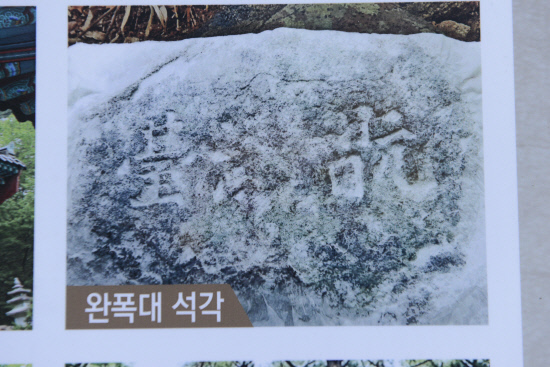 臺
완폭대 석각